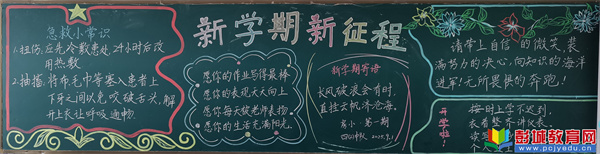 急救小常识
1.扭伤:应先冷敷患处,24小时后改
用热敷
2.抽搐:将布毛巾等塞入患者上
下牙之间以免咬破舌头,解
开上衣让呼吸通畅
新学期新征程
愿你的作业写得最棒
愿你的表现天天向上
愿你每天被老师表扬
愿你的生活充满阳光
新学期寄语
长风破浪会有时,
直挂云帆济沧海。
第一期
2025.9.1
请带上自信的微笑,装
满努力的决心,向知识的海洋
进军!无所畏惧的奔跑!
开学啦!
按时上学不迟到,
衣着整齐讲
彭城教育网
www.pcjyedu.cn